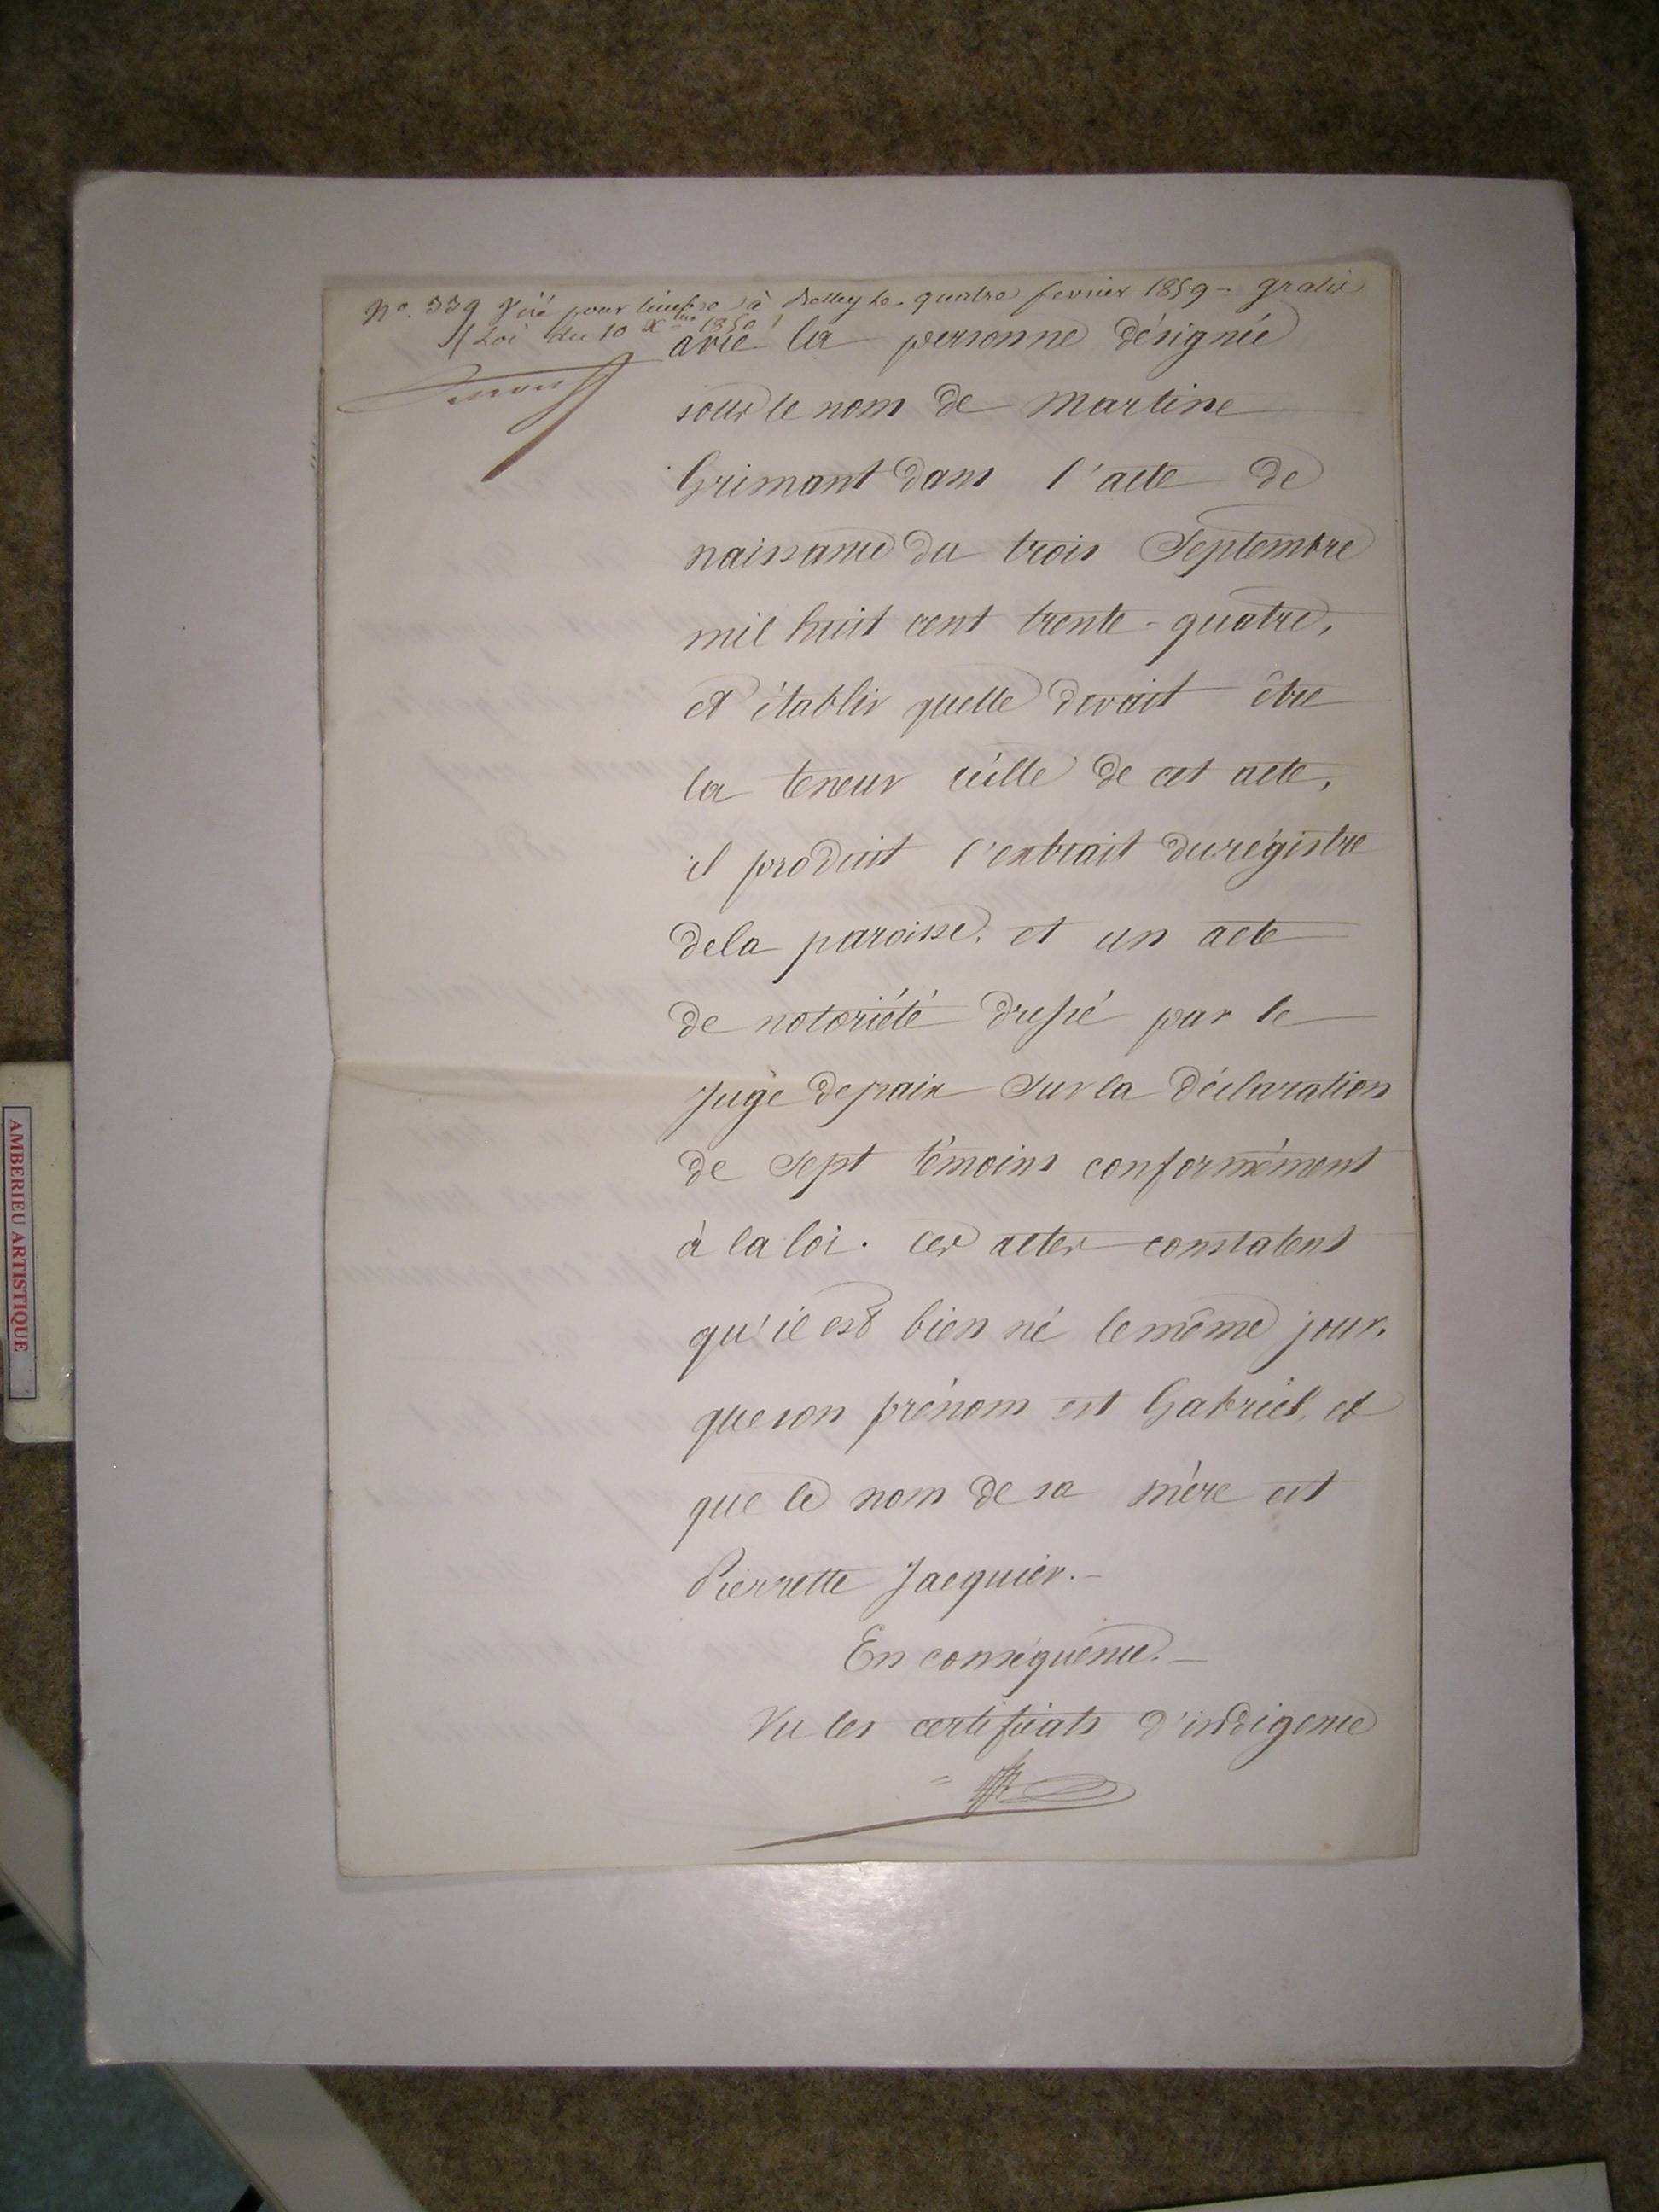 No. 339 Visé pour timbre à Belley le quatre fevrier 1859 - gratis
(Loi du 10 Xbre 1850)
avec la personne désignée
sous le nom de Martine
Grimant dans l'acte de
naissance du trois Septembre
mil huit cent trente-quatre,
et établir quelle devait être
la teneur réelle de cet acte,
il produit l'extrait du régistre
de la paroisse. et un acte
de notoriété dressé par le
juge de paix Sur la déclaration
de Sept témoins conformément
à la loi. ces actes constatent
qu'il est bien né le même jour.
que son prénom est Gabriel, et
que le nom de sa mère est
Pierrette Jacquier. -
En conséquence. -
Vu les certificats d'indigence
AMBERIEU ARTISTIQUE